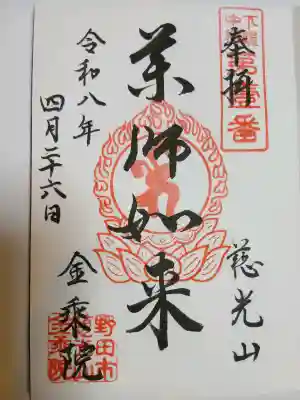 奉拝
薬師如来
慈光山
金乗院
令和八年
四月二十六日
野田市